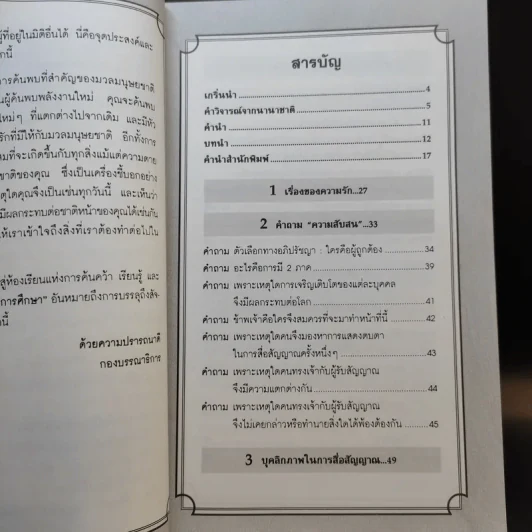 ผู้ที่อยู่ในมิติอื่นได้ นี่คือจุดประสงค์และ
กนี้
การค้นพบที่สำคัญของมวลมนุษยชาติ
นผู้ค้นพบพลังงานใหม่ คุณจะค้นพบ
ใหม่ๆ ที่แตกต่างไปจากเดิม และมีหัว
รักที่มีให้กับมวลมนุษยชาติ อีกทั้งการ
มที่จะเกิดขึ้นกับทุกสิ่งแม้แต่ความตาย
ชาติของคุณ ซึ่งเป็นเครื่องชี้บอกอย่าง
ตุใดคุณจึงเป็นเช่นทุกวันนี้ และเห็นว่า
มีผลกระทบต่อชาติหน้าของคุณได้เช่นกัน
ให้เราเข้าใจถึงสิ่งที่เราต้องทำต่อไปใน
สู่ห้องเรียนแห่งการค้นคว้า เรียนรู้ และ
การศึกษา" อันหมายถึงการบรรลุถึงสัจ-
กนี้
ด้วยความปรารถนาดี
กองบรรณาธิการ
สารบัญ
เกริ่นนำ 4
คำวิจารณ์จากนานาชาติ 5
คำนำ 11
บทนำ 12
คำนำสำนักพิมพ์ 17
1 เรื่องของความรัก...27
2 คำถาม "ความสับสน"...33
คำถาม ตัวเลือกทางอภิปรัชญา : ใครคือผู้ถูกต้อง 34
คำถาม อะไรคือการมี 2 ภาค 39
คำถาม เพราะเหตุใดการเจริญเติบโตของแต่ละบุคคล
จึงมีผลกระทบต่อโลก 41
คำถาม ข้าพเจ้าคือใครจึงสมควรที่จะมาทำหน้าที่นี้ 42
คำถาม เพราะเหตุใดคนจึงมองหาการแสดงตบตา
ในการสื่อสัญญาณครั้งหนึ่งๆ 43
คำถาม เพราะเหตุใดคนทรงเจ้ากับผู้รับสัญญาณ
จึงมีความแตกต่างกัน 44
คำถาม เพราะเหตุใดคนทรงเจ้ากับผู้รับสัญญาณ
จึงไม่เคยกล่าวหรือทำนายสิ่งใดได้พ้องต้องกัน 45
3 บุคลิกภาพในการสื่อสัญญาณ...49